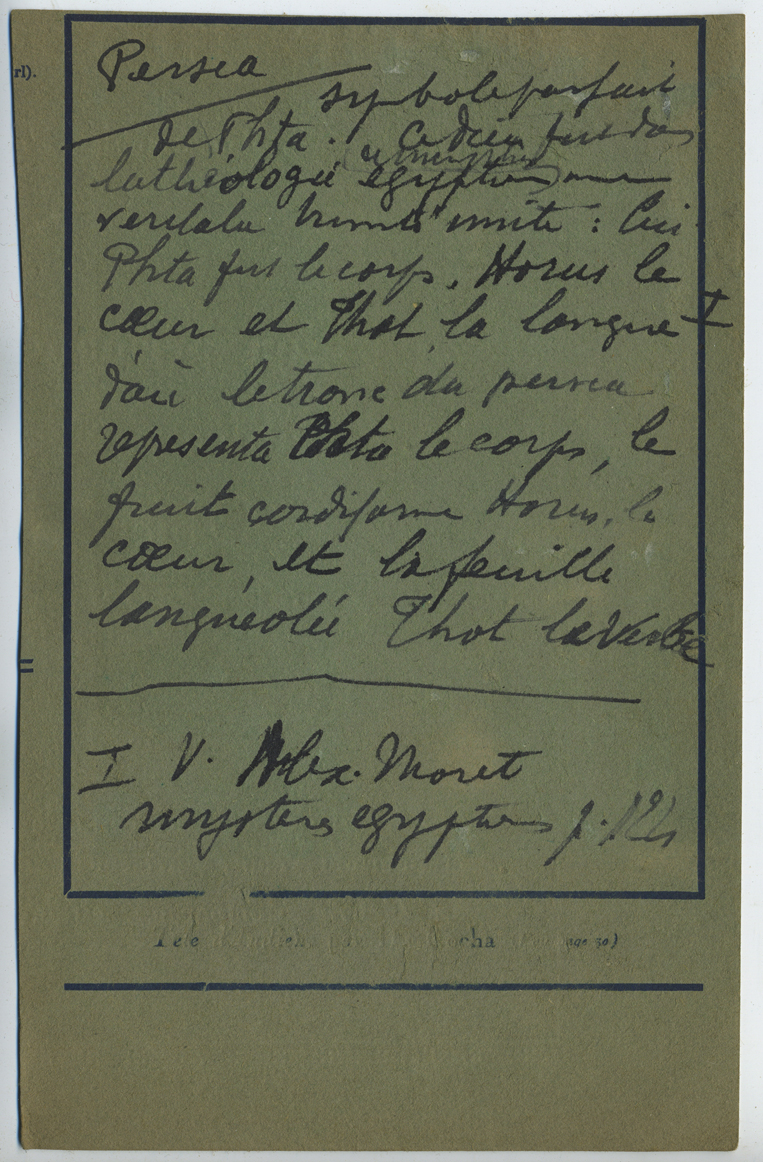 rl).
Persea
symbole parfait
de Phta. Ce dieu fut dans
la théologie égyptienne une
veritable trinité unité : lui
Phta fut le corps, Horus le
cœur et Thot la langue I
d'où le tronc du persea
representa Phta le corps, le
fruit cordiforme Horus, le
cœur, et la feuille
languéolée Thot le Verbe
I V. Alex. Moret
mystères egyptiens p.
Tete cha